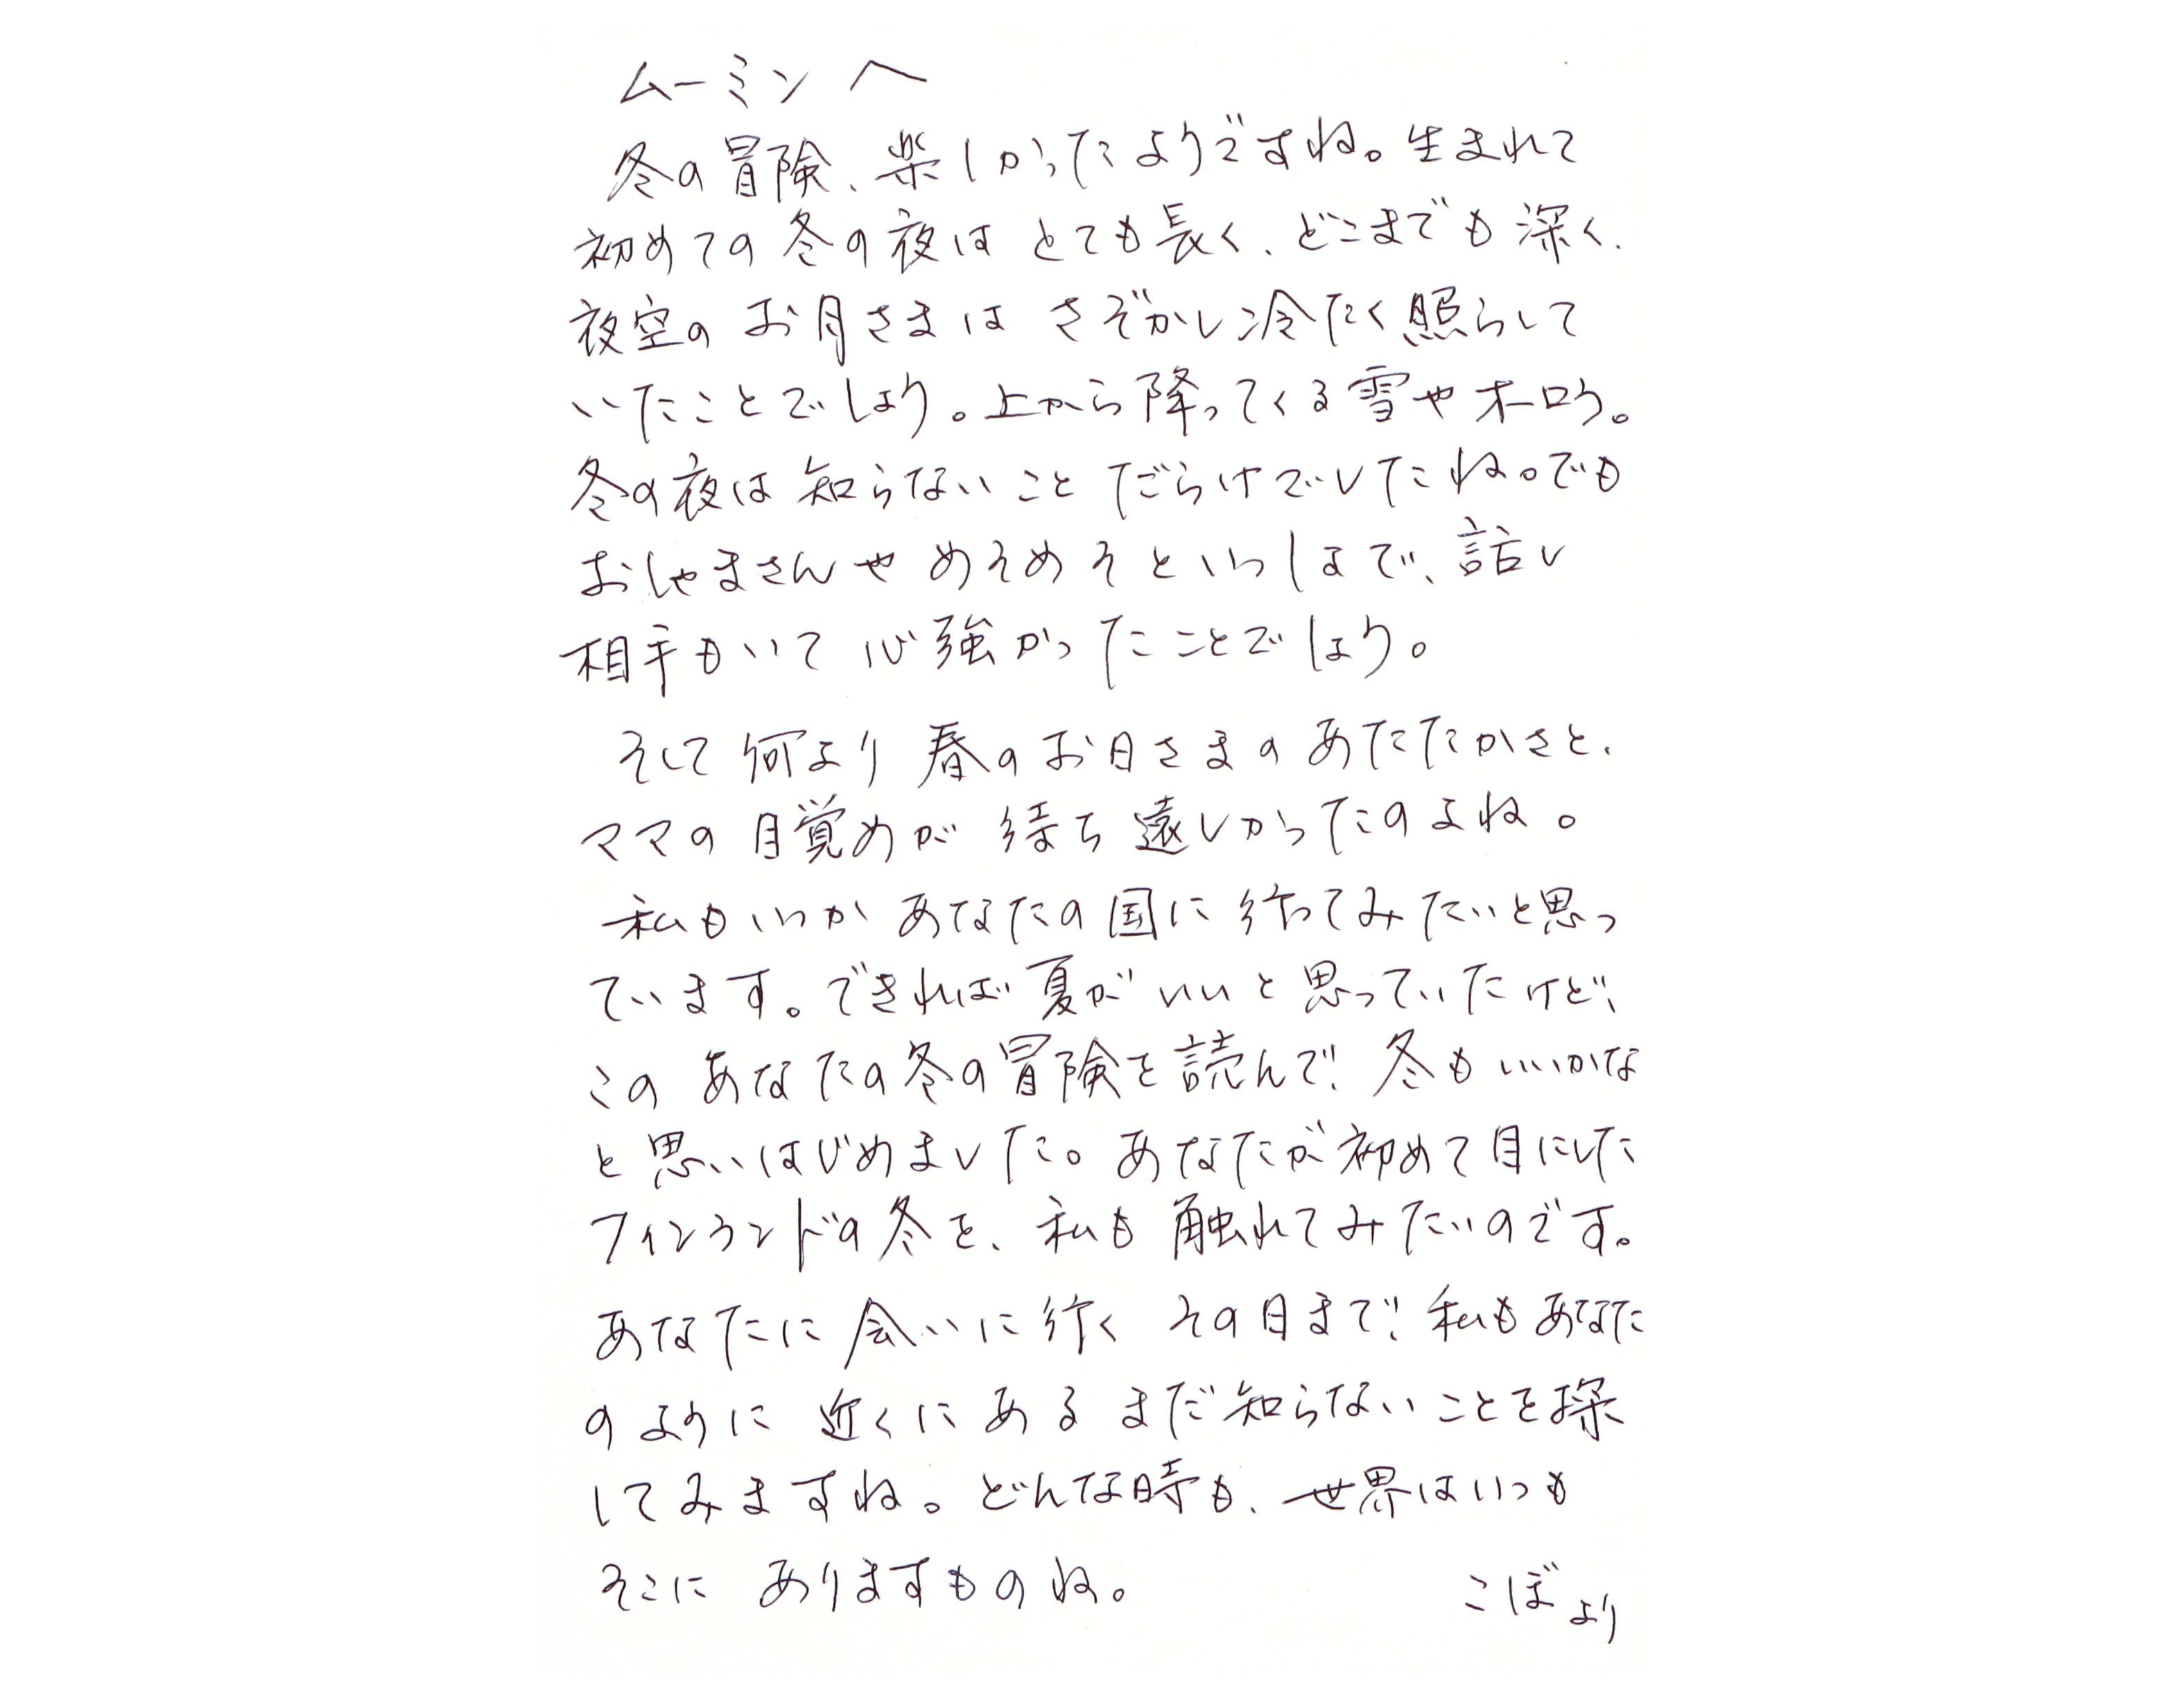 ムーミンへ
冬の冒険、楽しかったようですね。生まれて
初めての冬の夜はとても長く、どこまでも深く、
夜空のお月さまはさぞかし冷たく照らして
いたことでしょう。上から降ってくる雪やオーロラ。
冬の夜は知らないことだらけでしたね。でも
おしゃまさんやめそめそといっしょで、話し
相手もいて心強かったことでしょう。
そして何より春のお日さまのあたたかさと、
ママの目覚めが待ち遠しかったのよね。
私もいつかあなたの国に行ってみたいと思っ
ています。できれば夏がいいと思っていたけど、
このあなたの冬の冒険を読んで、冬もいいかな
と思いはじめました。あなたが初めて目にした
フィンランドの冬を、私も触れてみたいのです。
あなたに会いに行くその日まで、私もあなた
のように近くにあるまだ知らないことを探
してみますね。どんな時も、世界はいつも
そこにありますものね。
こぼより